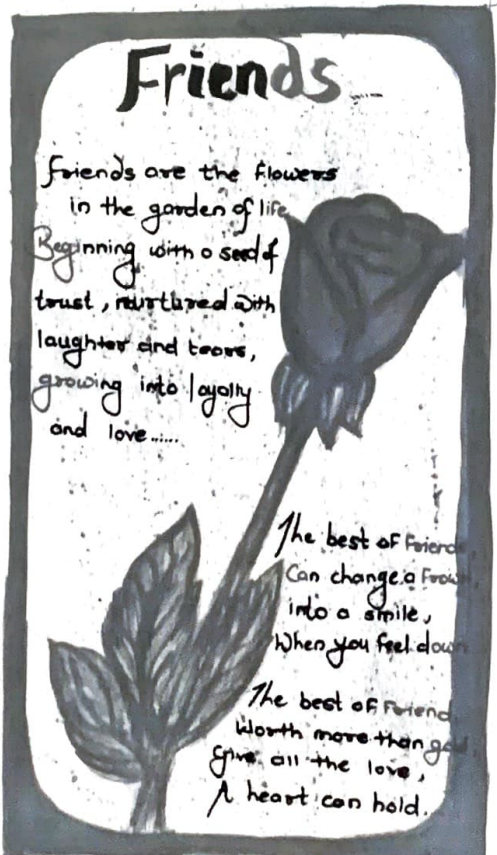 Friends....
Friends are the Flowers
in the garden of life
Beginning with a seed of
trust, nurtured with
laughter and tears,
growing into loyally
and love......
The best of Friend
Can change a Frown,
into a smile,
When you feel down
The best of Friend
Worth more than gold,
Give all the love,
A heart can hold.